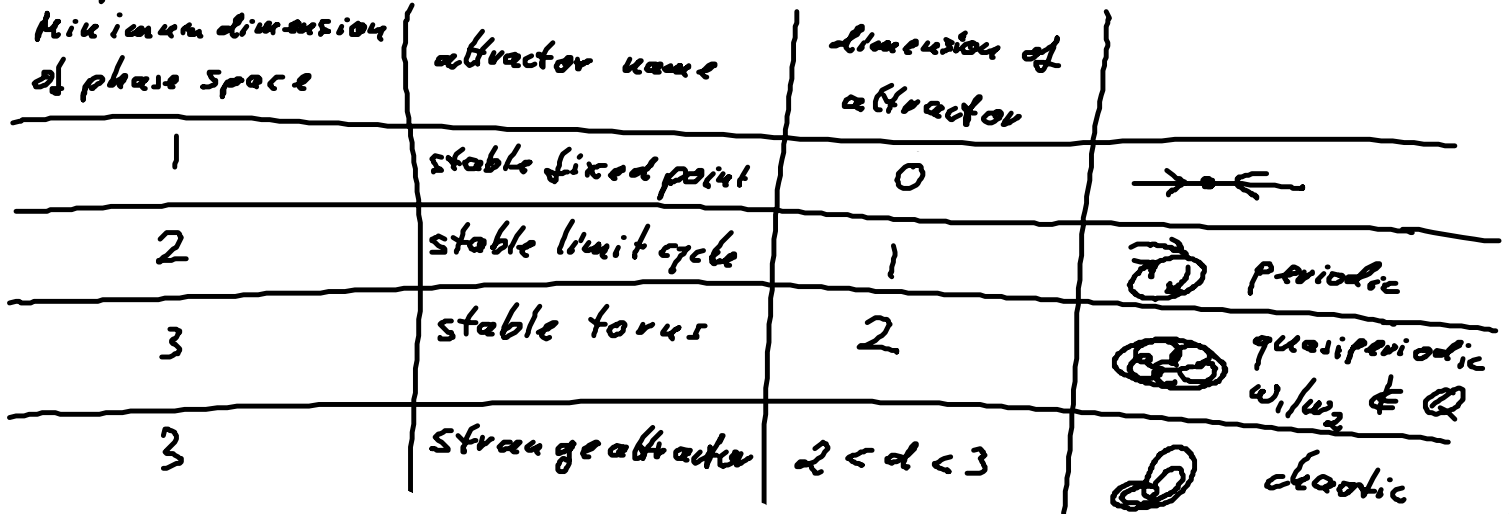 Minimum dimension of phase space | attractor name | dimension of attractor
1 | stable fixed point | 0
2 | stable limit cycle | 1 | periodic
3 | stable torus | 2 | quasiperiodic ω₁/ω₂ ∉ Q
3 | strange attractor | 2 < d < 3 | chaotic